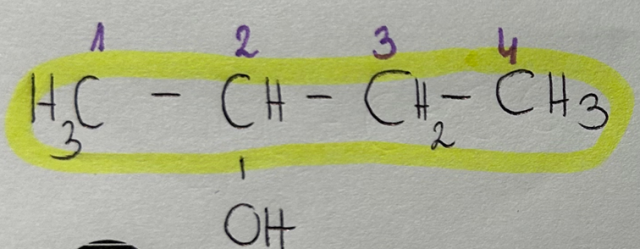 1 2 3 4
H₃C - CH - CH₂ - CH3
OH